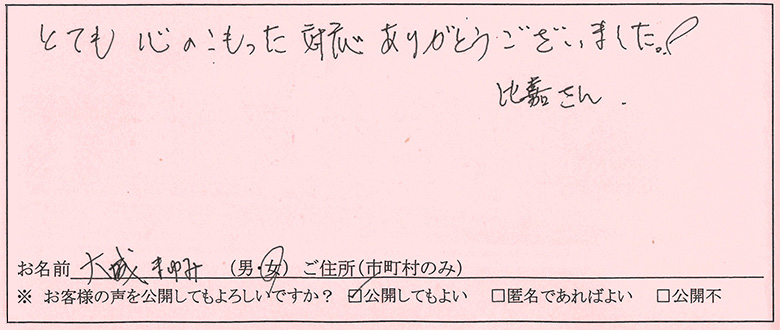 とても 心のこもった 対応 ありがとうございました。!
比嘉さん.
お名前 大城 まゆみ (男・女) ご住所(市町村のみ)
※ お客様の声を公開してもよろしいですか? ☑公開してもよい □匿名であればよい □公開不